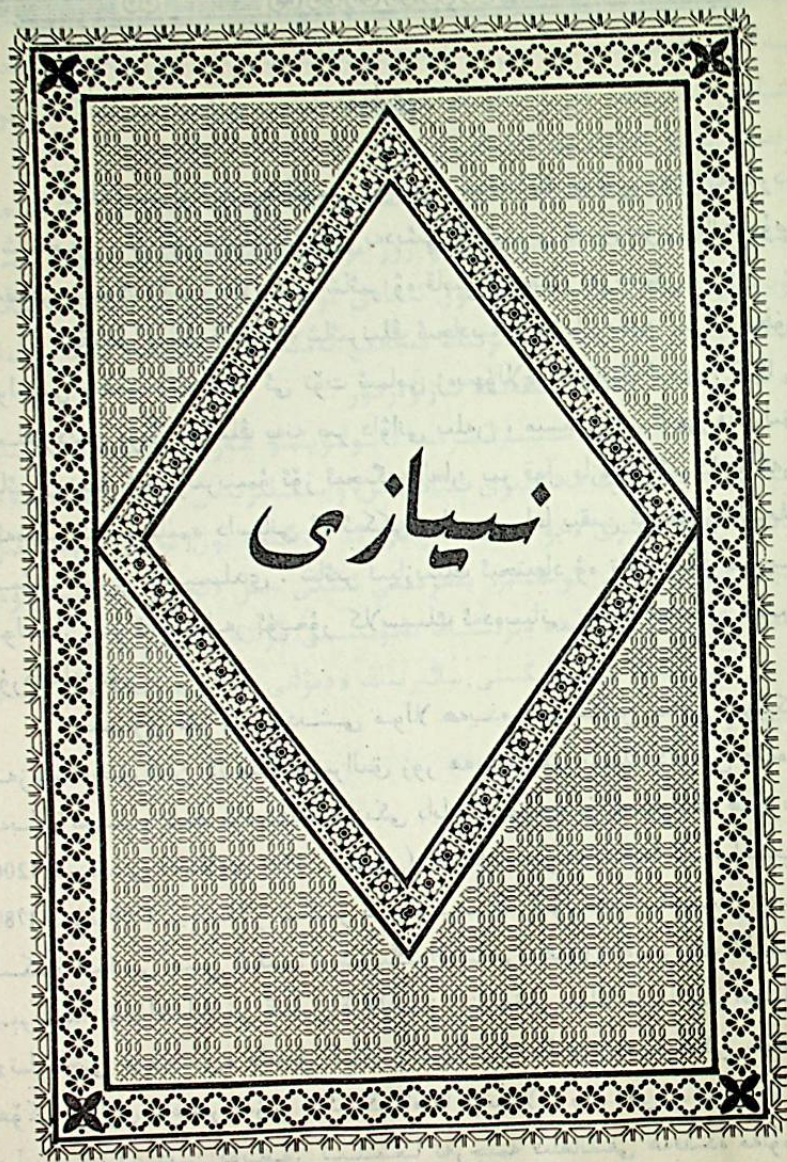 نىيازى